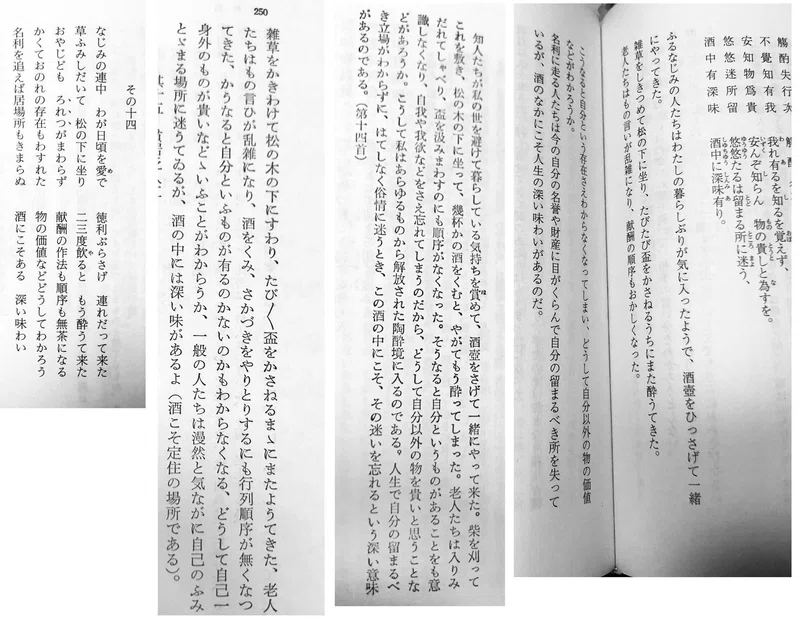 觴酌失行次
不覺知有我
安知物爲貴
悠悠迷所留
酒中有深味
我れ有るを知るを覚えず、
安んぞ知らん　物の貴しと為すを。
悠悠たるは留まる所に迷う、
酒中に深味有り。
ふるなじみの人たちはわたしの暮らしぶりが気に入ったようで、酒壺をひっさげて一緒
にやってきた。
雑草をしきつめて松の下に坐り、たびたび盃をかさねるうちにまた酔うてきた。
老人たちはもの言いが乱雑になり、献酬の順序もおかしくなった。
こうなると自分という存在さえわからなくなってしまい、どうして自分以外の物の価値
などがわかろうか。
名利に走る人たちは今の自分の名誉や財産に目がくらんで自分の留まるべき所を失って
いるが、酒のなかにこそ人生の深い味わいがあるのだ。
知人たちが私の世を避けて暮らしている気持ちを賞めて、酒壺をさげて一緒にやって来た。柴を刈って
これを敷き、松の木の下に坐って、幾杯かの酒をくむと、やがてもう酔ってしまった。老人たちは入りみ
だれてしゃべり、盃を汲みまわすのにも順序がなくなった。そうなると自分というものがあることをも意
識しなくなり、自我や我欲などをさえ忘れてしまうのだから、どうして自分以外の物を貴いと思うことな
どがあろうか。こうして私はあらゆるものから解放された陶酔境に入るのである。人生で自分の留まるべ
き立場がわからずに、はてしなく俗情に迷うとき、この酒の中にこそ、その迷いを忘れるという深い意味
があるのである。（第十四首）
250
雑草をかきわけて松の木の下にすわり、たび〳〵盃をかさねるまゝにまたようてきた、老人
たちはもの言ひが乱雑になり、酒をくみ、さかづきをやりとりするにも行列順序が無くなつ
てきた、かうなると自分といふものが有るのかないのかもわからなくなる、どうして自己一
身外のものが貴いなどゝいふことがわからうか、一般の人たちは漫然と気ながに自己のふみ
とゞまる場所に迷うてゐるが、酒の中には深い味があるよ（酒こそ定住の場所である）。
その十四
なじみの連中　わが日頃を愛で　徳利ぶらさげ　連れだって来た
草ふみしだいて　松の下に坐り　二三度飲ると　もう酔うて来た
おやじども　ろれつがまわらず　献酬の作法も順序も無茶になる
かくておのれの存在もわすれた　物の価値などどうしてわかろう
名利を追えば居場所もきまらぬ　酒にこそある　深い味わい